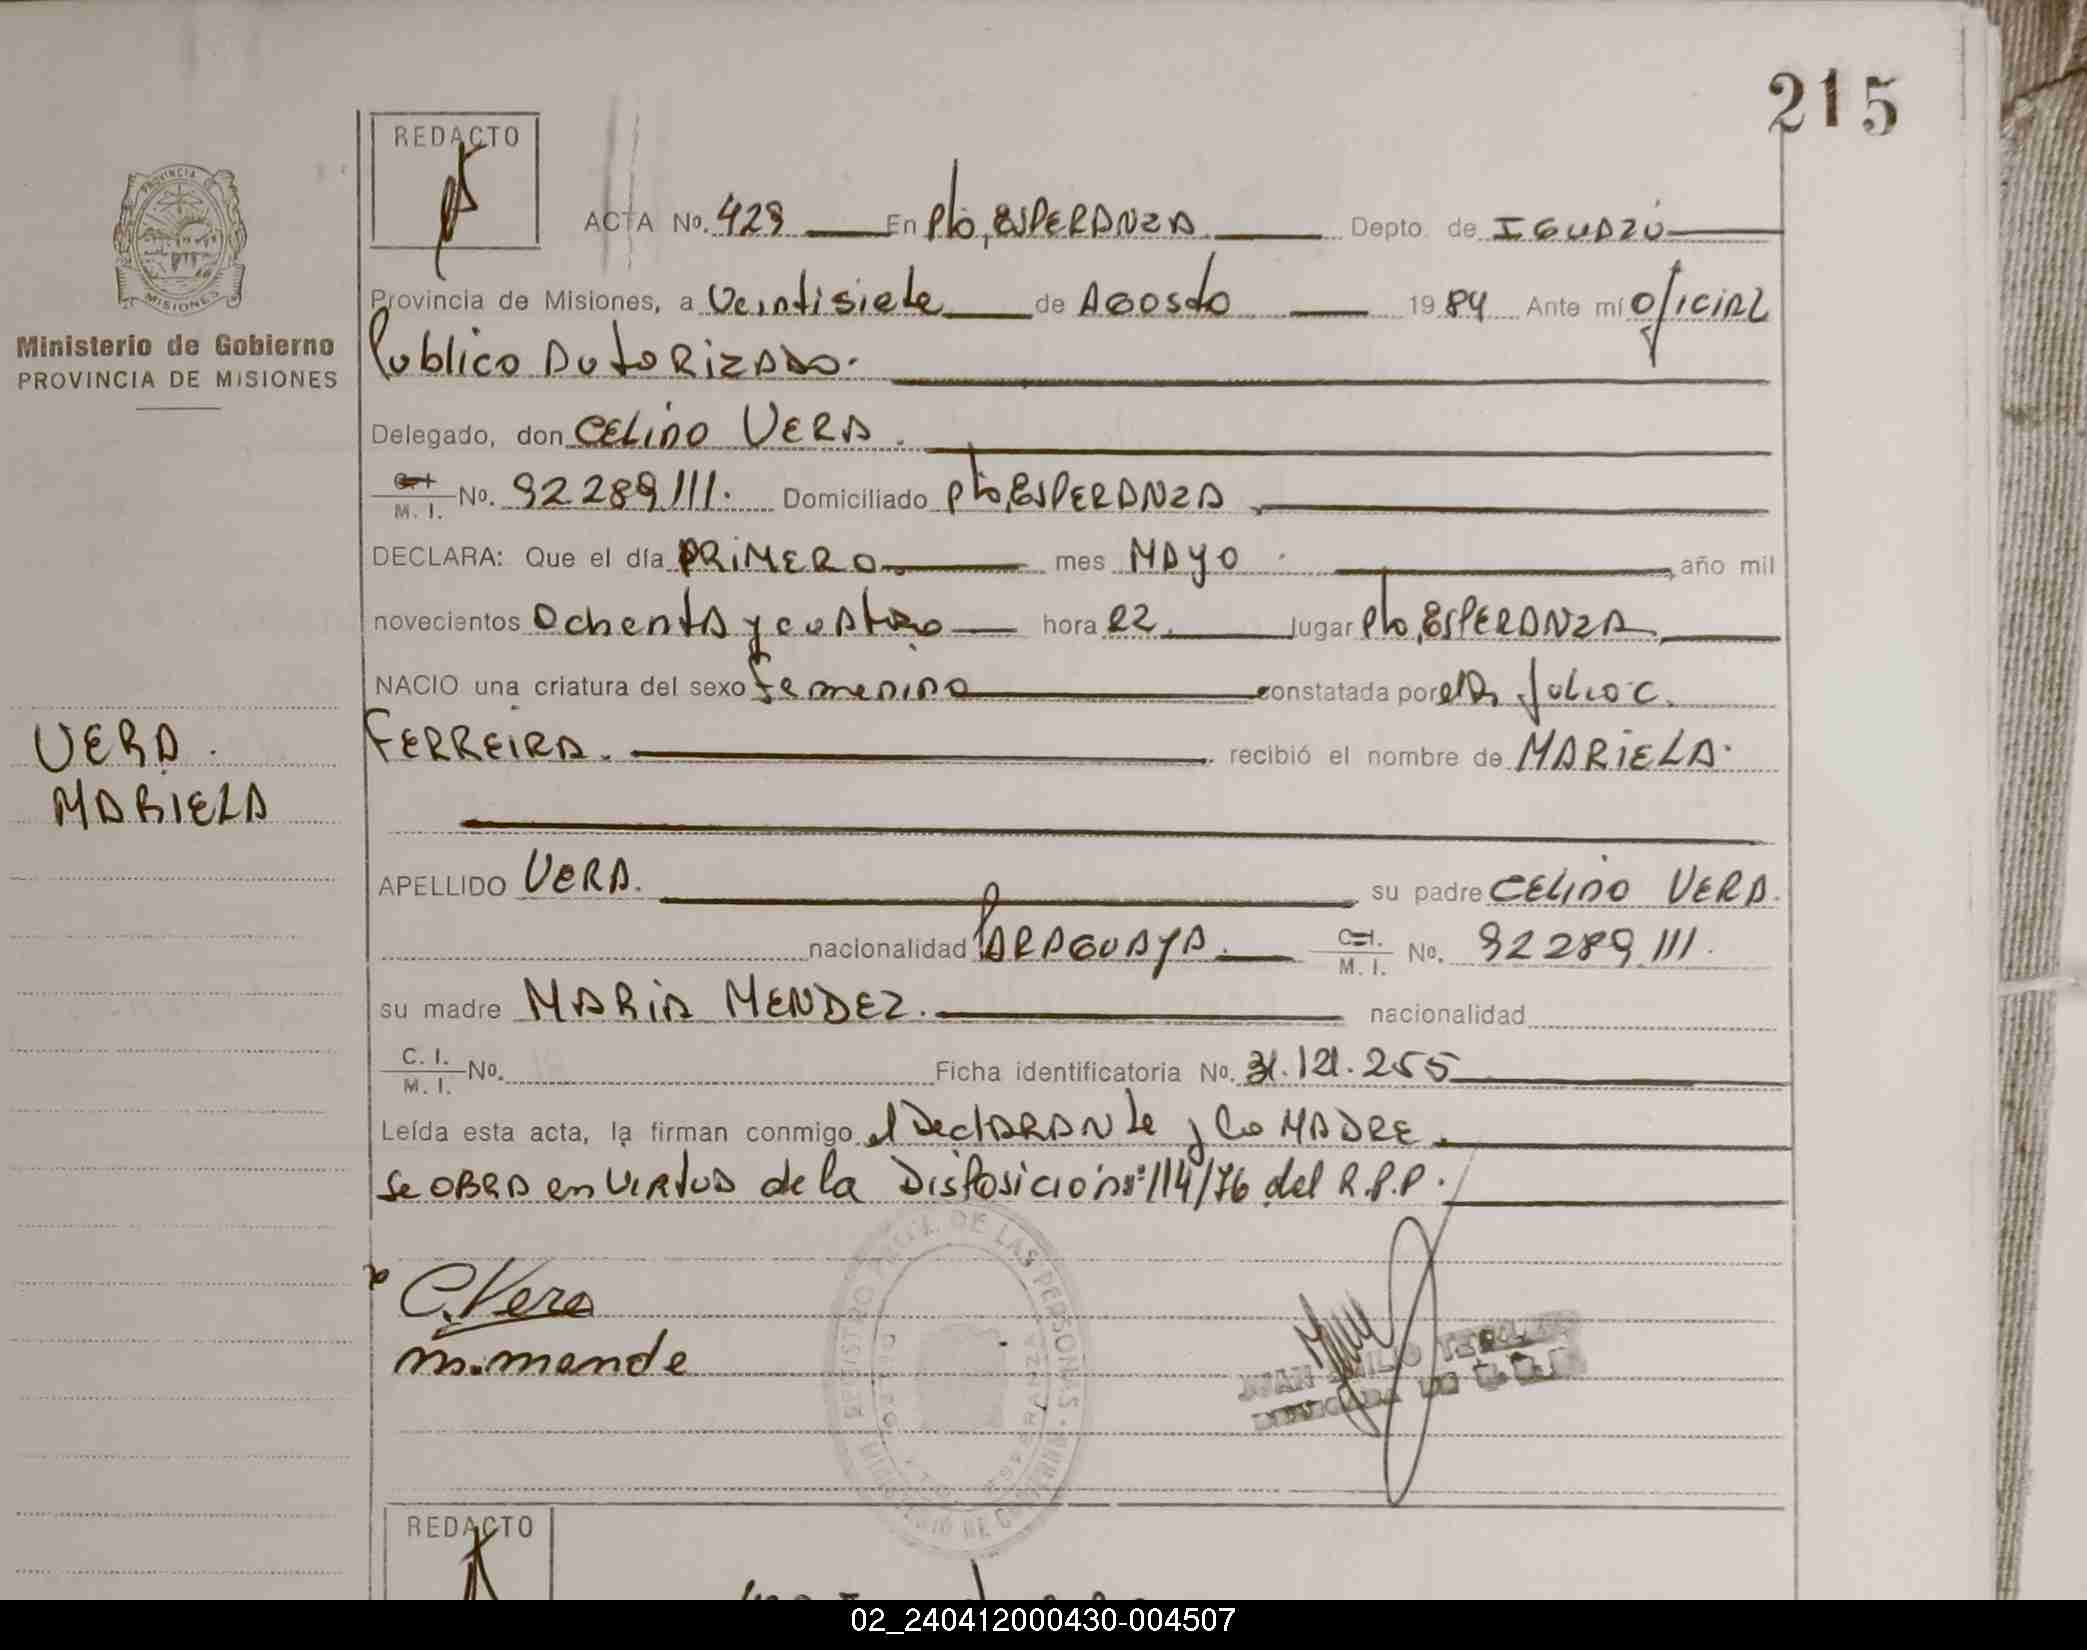 215
REDACTO
PROVINCIA DE
MISIONES
ACTA No. 429 En Pto, ESPERANZA Depto. de IGUAZÚ
Provincia de Misiones, a Veintisiete de AGOSTO 1984 Ante mí OFICIAL
Publico AUTORIZADO.
Ministerio de Gobierno
PROVINCIA DE MISIONES
Delegado, don CELINO VERA.
M. I. No. 92289111. Domiciliado Pto, ESPERANZA
DECLARA: Que el día PRIMERO mes MAYO año mil
novecientos Ochenta y cuatro hora 22 lugar Pto, ESPERANZA
NACIO una criatura del sexo femenino constatada por el Dr JULIO C.
VERA.
MARIELA
FERREIRA. recibió el nombre de MARIELA.
APELLIDO VERA. su padre CELINO VERA.
nacionalidad PARAGUAYA. C.I. M. I. No. 92289111.
su madre MARIA MENDEZ. nacionalidad
C. I. M. I. No. Ficha identificatoria No. 31.121.255
Leída esta acta, la firman conmigo el DeclARANte y la MADRE
Se OBRA en VIRTUD de la Disposición nº 114/76 del R.P.P.
C. Vera
m. mende
REGISTRO DE LAS PERSONAS
JUAN EMILIO
REDACTO
02_240412000430-004507